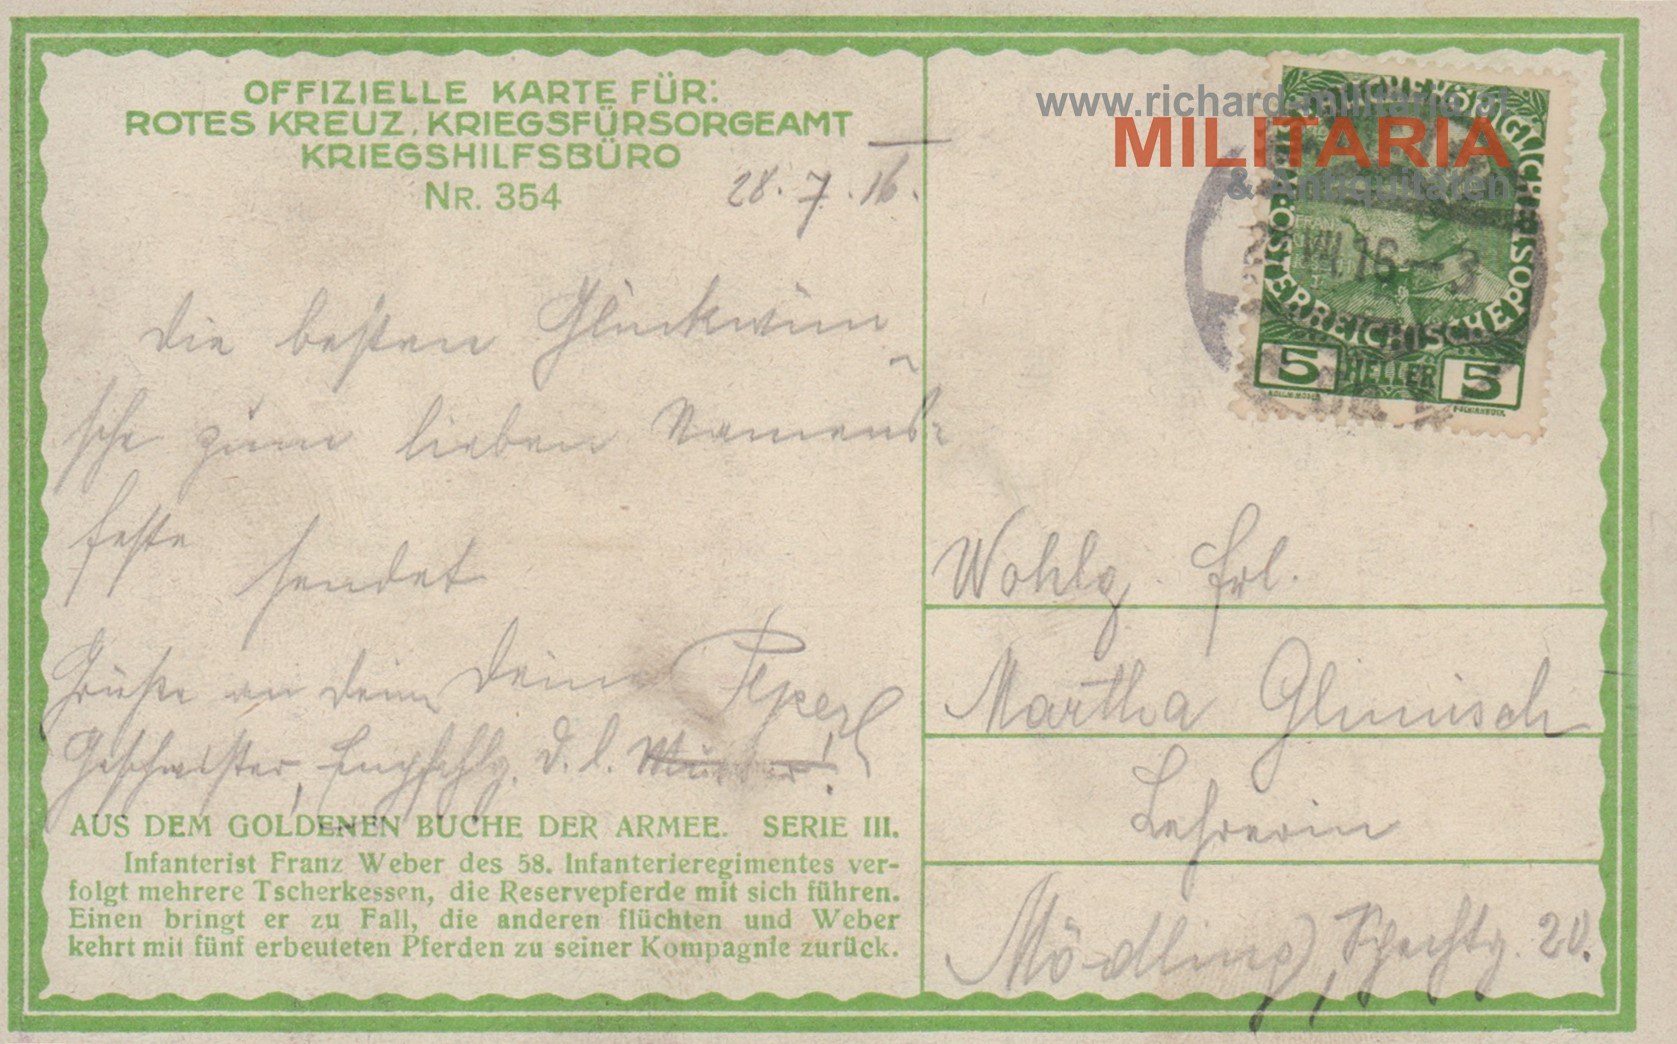 OFFIZIELLE KARTE FÜR:
ROTES KREUZ, KRIEGSFÜRSORGEAMT
KRIEGSHILFSBÜRO
NR. 354
28. 7. 16.
Die besten Glückwün-
sche zum lieben Namens-
feste sendet
Deine
Grüße an Deine
Geschwister, Empfehlg. d. l. Mutter!
AUS DEM GOLDENEN BUCHE DER ARMEE. SERIE III.
Infanterist Franz Weber des 58. Infanterieregimentes ver-
folgt mehrere Tscherkessen, die Reservepferde mit sich führen.
Einen bringt er zu Fall, die anderen flüchten und Weber
kehrt mit fünf erbeuteten Pferden zu seiner Kompagnie zurück.
www.richard-militaria.at
MILITARIA
& Antiquitäten
KAISERLICHE KÖNIGLICHE
ÖSTERREICHISCHE POST
FRANZ
VII.16-3
5 HELLER 5
Wohlg. Frl.
Martha Glimisch
Lehrerin
Mödling, 20.